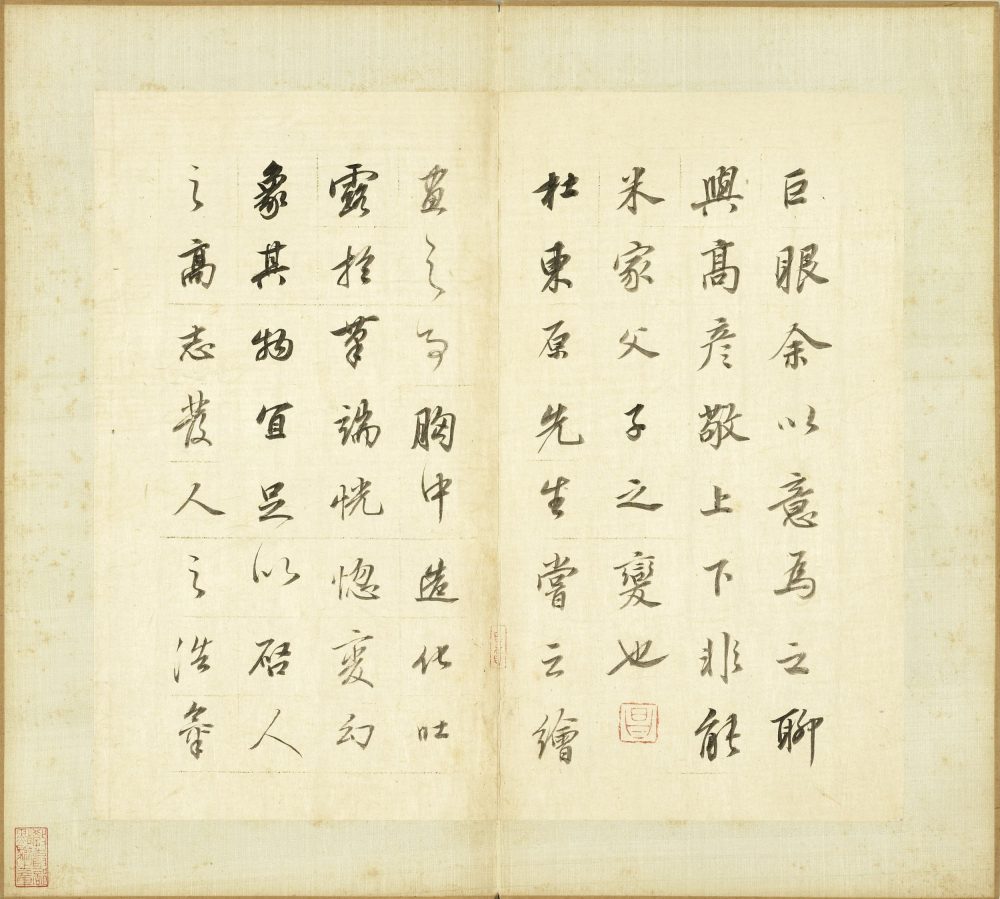 巨眼余以意為之聊
與高彥敬上下非能
米家父子之變也
杜東原先生嘗云繪
畫之事胸中造化吐
露於筆端恍惚變幻
象其物宜足以啓人
之高志發人之浩氣